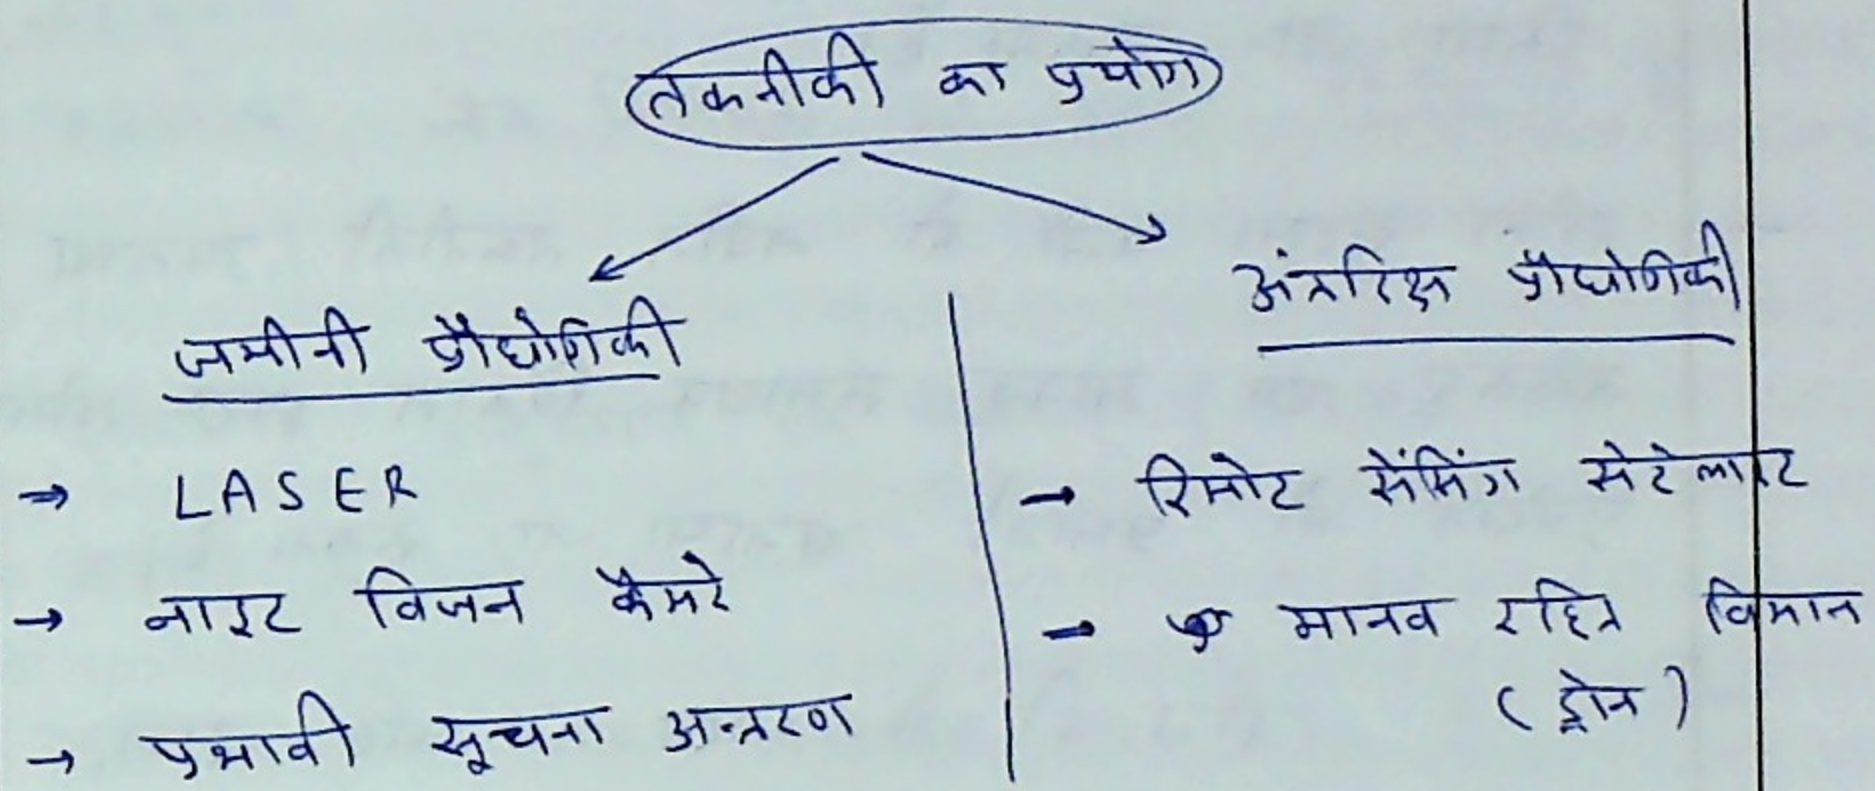 तकनीकी का प्रयोग
जमीनी प्रौद्योगिकी
→ LASER
→ नाइट विजन कैमरे
→ प्रभावी सूचना अन्तरण
अंतरिक्ष प्रौद्योगिकी
→ रिमोट सेंसिंग सेटेलाइट
→ मानव रहित विमान
(ड्रोन)